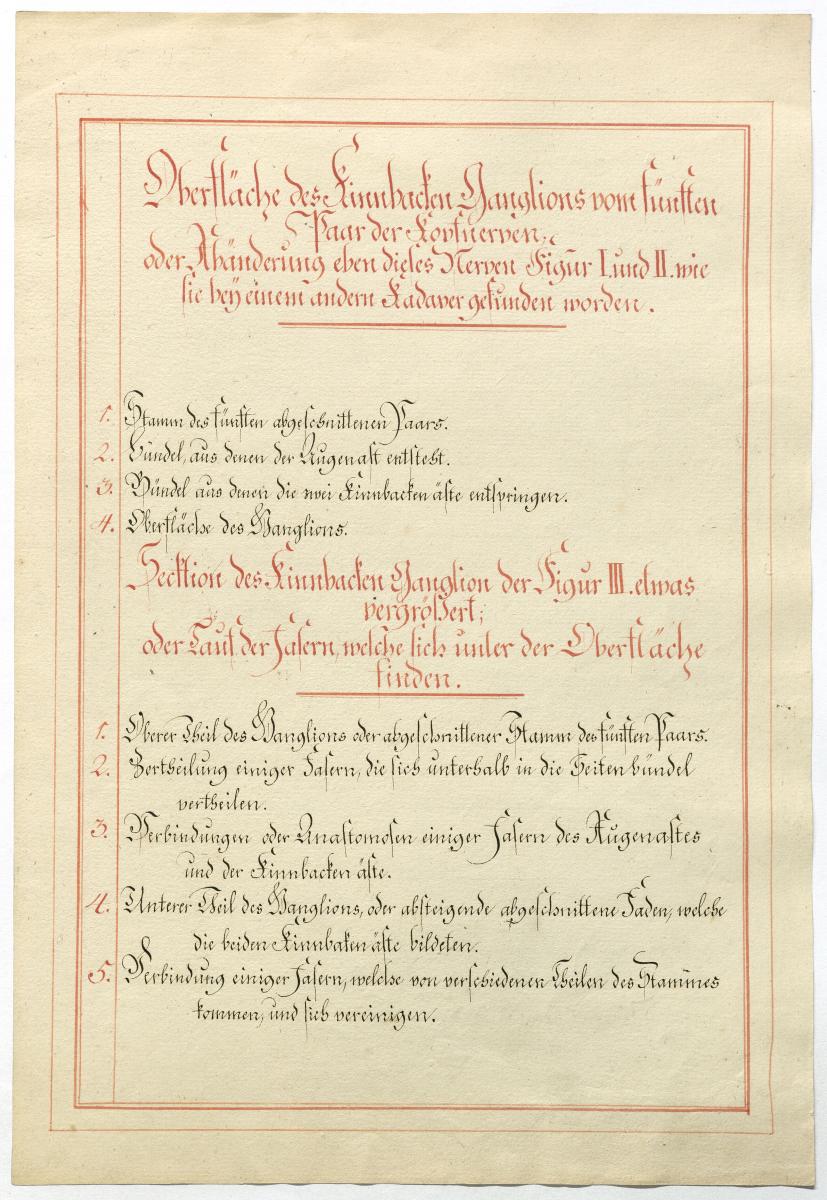 Oberfläche des Kinnbacken Ganglions vom fünften
Paar der Kopfnerven;
oder Abänderung eben dieses Nerven Figur I. und II. wie
sie bey einem andern Kadaver gefunden worden.
1. Stamm des fünften abgeschnittenen Paars.
2. Bündel, aus denen der Augenast entsteht.
3. Bündel aus denen die zwei Kinnbacken äste entspringen.
4. Oberfläche des Ganglions.
Secktion des Kinnbacken Ganglion der Figur III. etwas
vergrößert;
oder Lauf der Fasern, welche sich unter der Oberfläche
finden.
1. Oberer Theil des Ganglions oder abgeschnittener Stamm des fünften Paars.
2. Zertheilung einiger Fasern, die sich unterhalb in die Seiten bündel
vertheilen.
3. Verbindungen oder Anastomosen einiger Fasern des Augenastes
und der Kinnbacken äste.
4. Unterer Theil des Ganglions, oder absteigende abgeschnittene Faden, welche
die beiden Kinnbaken äste bildeten.
5. Verbindung einiger Fasern, welche von verschiedenen Theilen des Stammes
kommen, und sich vereinigen.